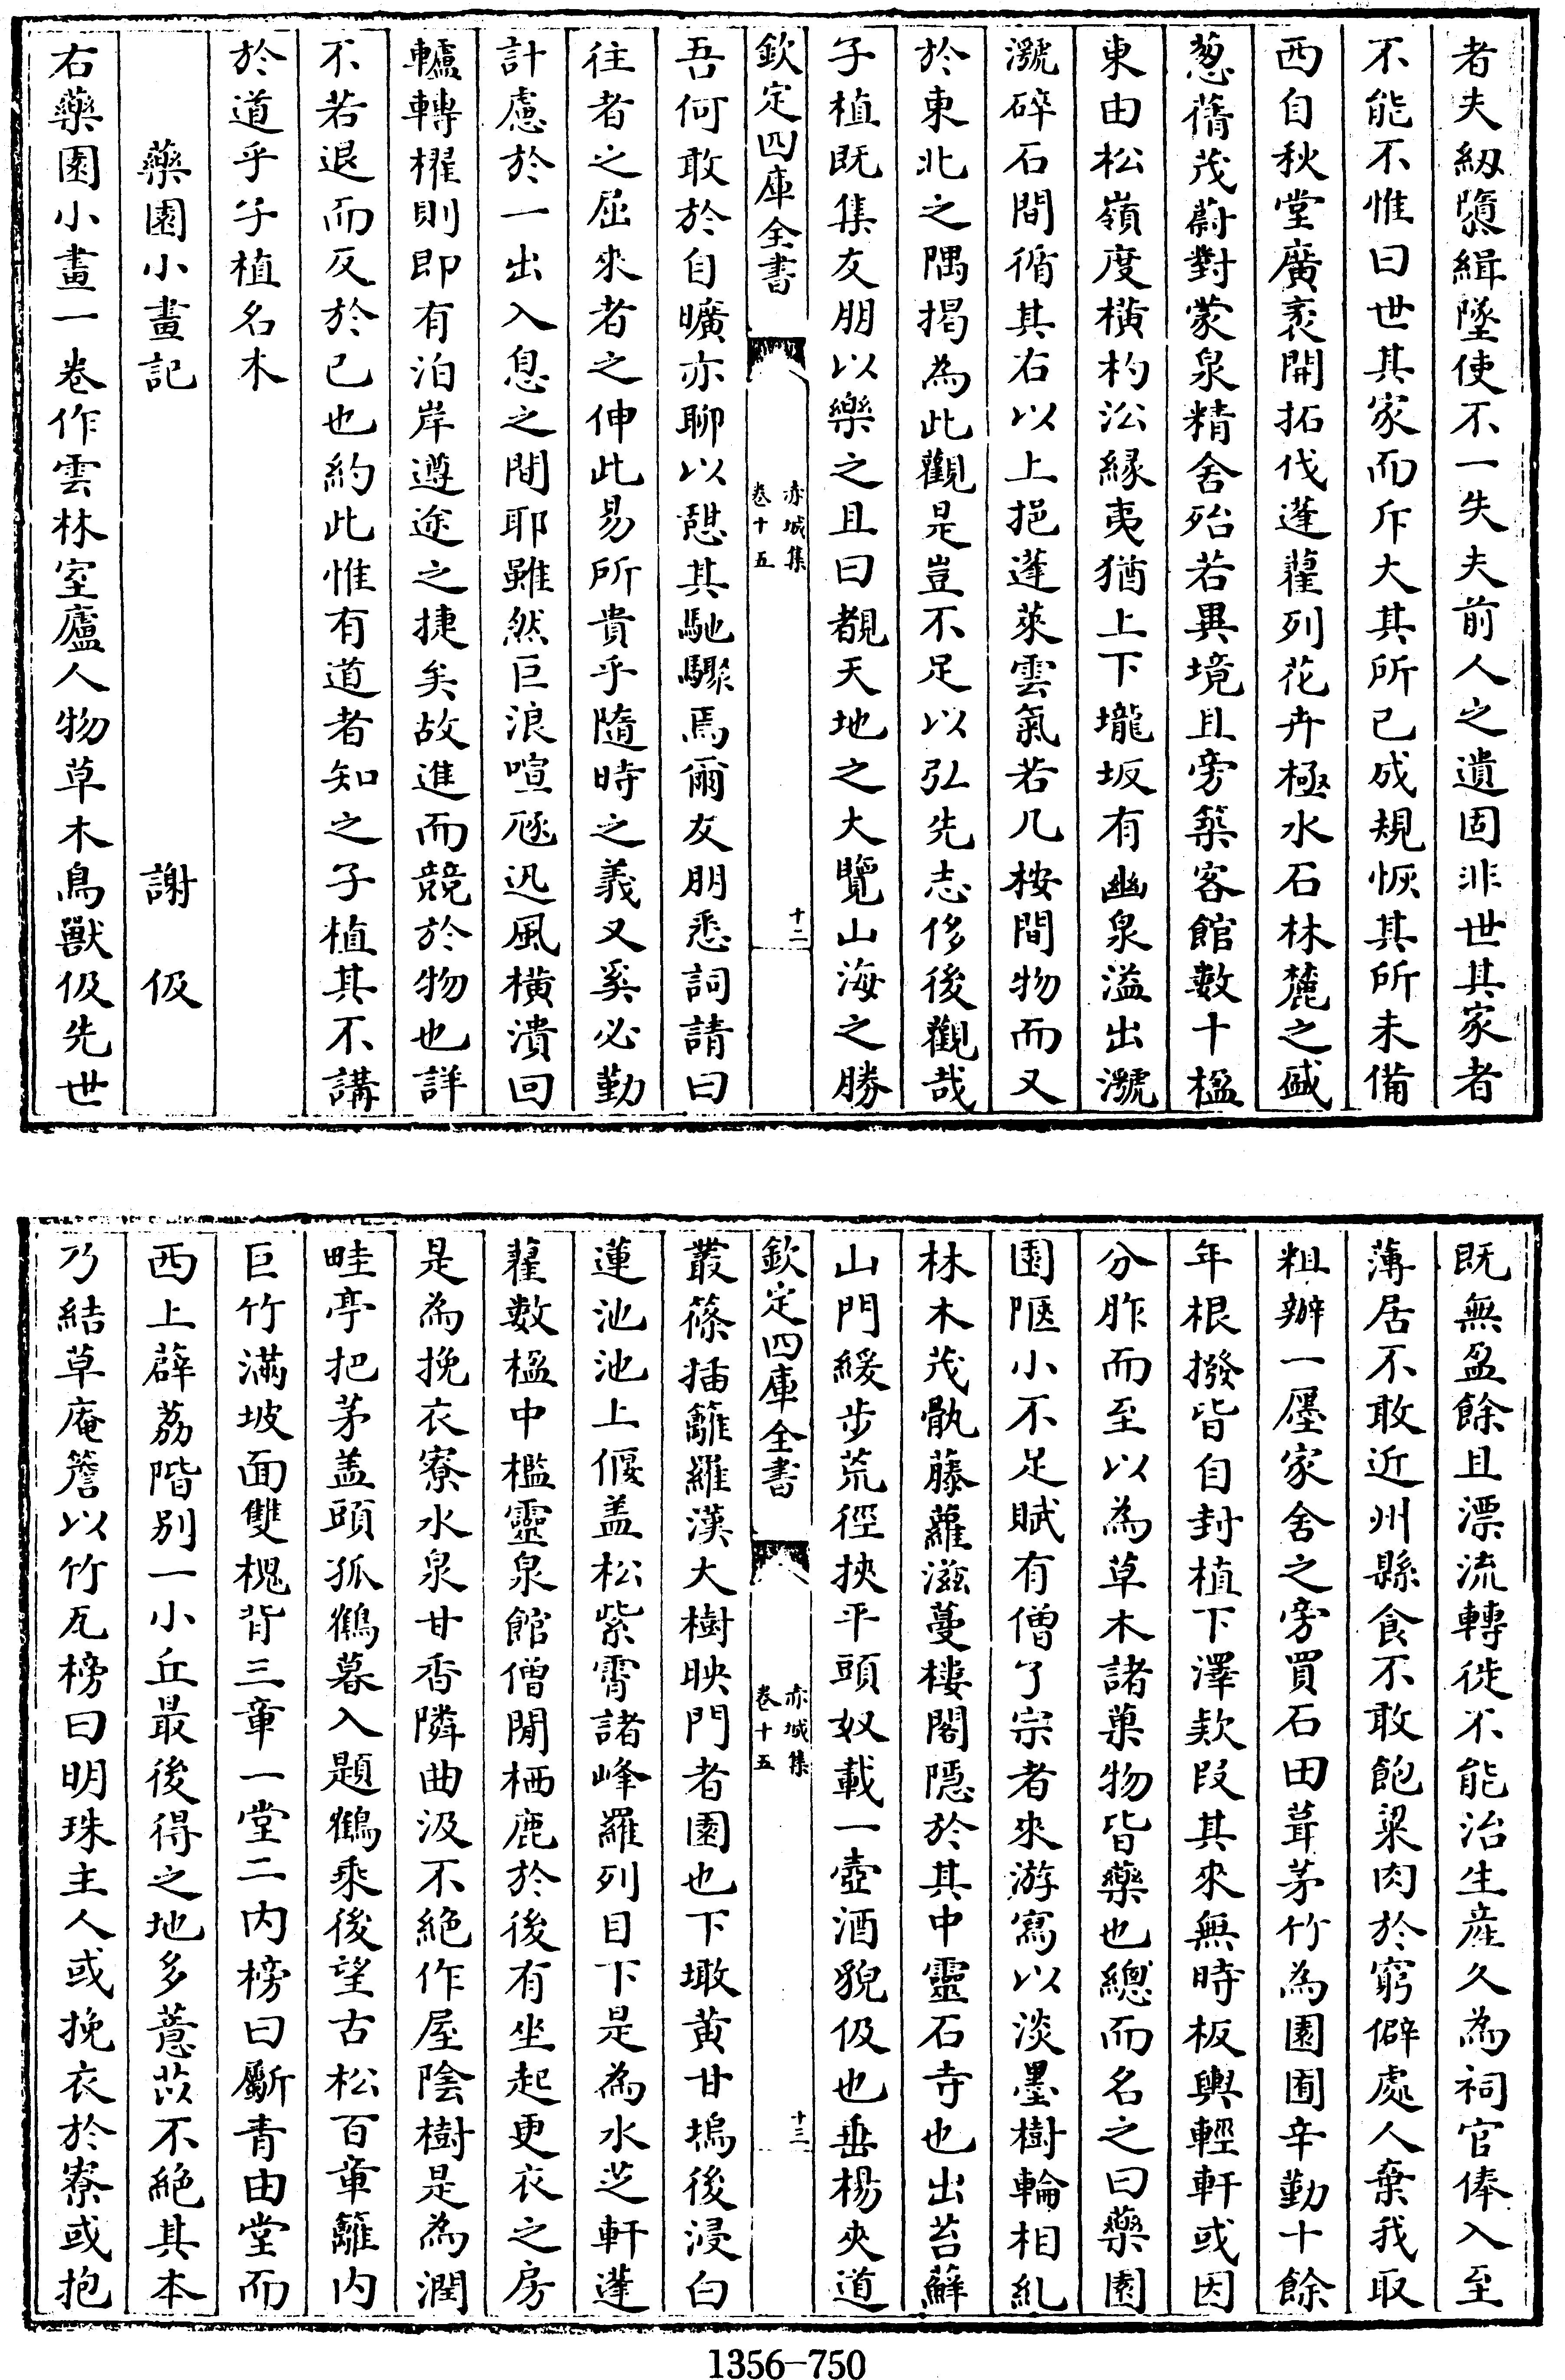 者夫紉隳緝墜使不一失夫前人之遺固非世其家者
不能不惟曰世其家而斥大其所已成規恢其所未備
西自秋堂廣袤開拓伐蓬藋列花卉極水石林麓之盛
葱蒨茂蔚對蒙泉精舍殆若異境且旁築客館數十楹
東由松嶺度橫杓㳂緣夷猶上下壠坂有幽泉溢出㶁
㶁碎石間循其右以上挹蓬萊雲氣若几桉間物而又
於東北之隅揭為此觀是豈不足以弘先志侈後觀哉
子植既集友朋以樂之且曰覩天地之大覽山海之勝
欽定四庫全書
赤城集
卷十五
十二
吾何敢於自曠亦聊以憩其馳驟焉爾友朋悉詞請曰
往者之屈來者之伸此易所貴乎隨時之義又奚必勤
計慮於一出入息之間耶雖然巨浪喧豗迅風橫潰回
轤轉櫂則即有泊岸遵途之捷矣故進而競於物也詳
不若退而反於已也約此惟有道者知之子植其不講
於道乎子植名木
藥園小畫記 謝伋
右藥園小畫一卷作雲林室廬人物草木鳥獸伋先世
既無盈餘且漂流轉徙不能治生産久為祠官俸入至
薄居不敢近州縣食不敢飽粱肉於窮僻處人棄我取
粗辦一㕓家舍之旁買石田葺茅竹為園囿辛勤十餘
年根撥皆自封植下澤欵段其來無時板輿輕軒或因
分胙而至以為草木諸菓物皆藥也總而名之曰藥園
園陋小不足賦有僧了宗者來游寫以淡墨樹輪相糺
林木茂骩藤蘿滋蔓樓閣隠於其中靈石寺也出苔蘚
山門緩步荒徑挾平頭奴載一壺酒貌伋也垂楊夾道
欽定四庫全書
赤城集
卷十五
十三
叢篠插籬羅漢大樹映門者園也下墩黄甘塢後浸白
蓮池池上偃盖松紫霄諸峰羅列目下是為水芝軒蓬
藋數楹中檻靈泉館僧閒栖鹿於後有坐起更衣之房
是為挽衣寮水泉甘香隣曲汲不絶作屋陰樹是為潤
畦亭把茅盖頭孤鶴暮入題鶴乘後望古松百章籬内
巨竹滿坡面雙槐背三章一堂二内榜曰斸青由堂而
西上薜荔階别一小丘最後得之地多薏苡不絶其本
乃結草庵簷以竹瓦榜曰明珠主人或挽衣於寮或抱
1356-750